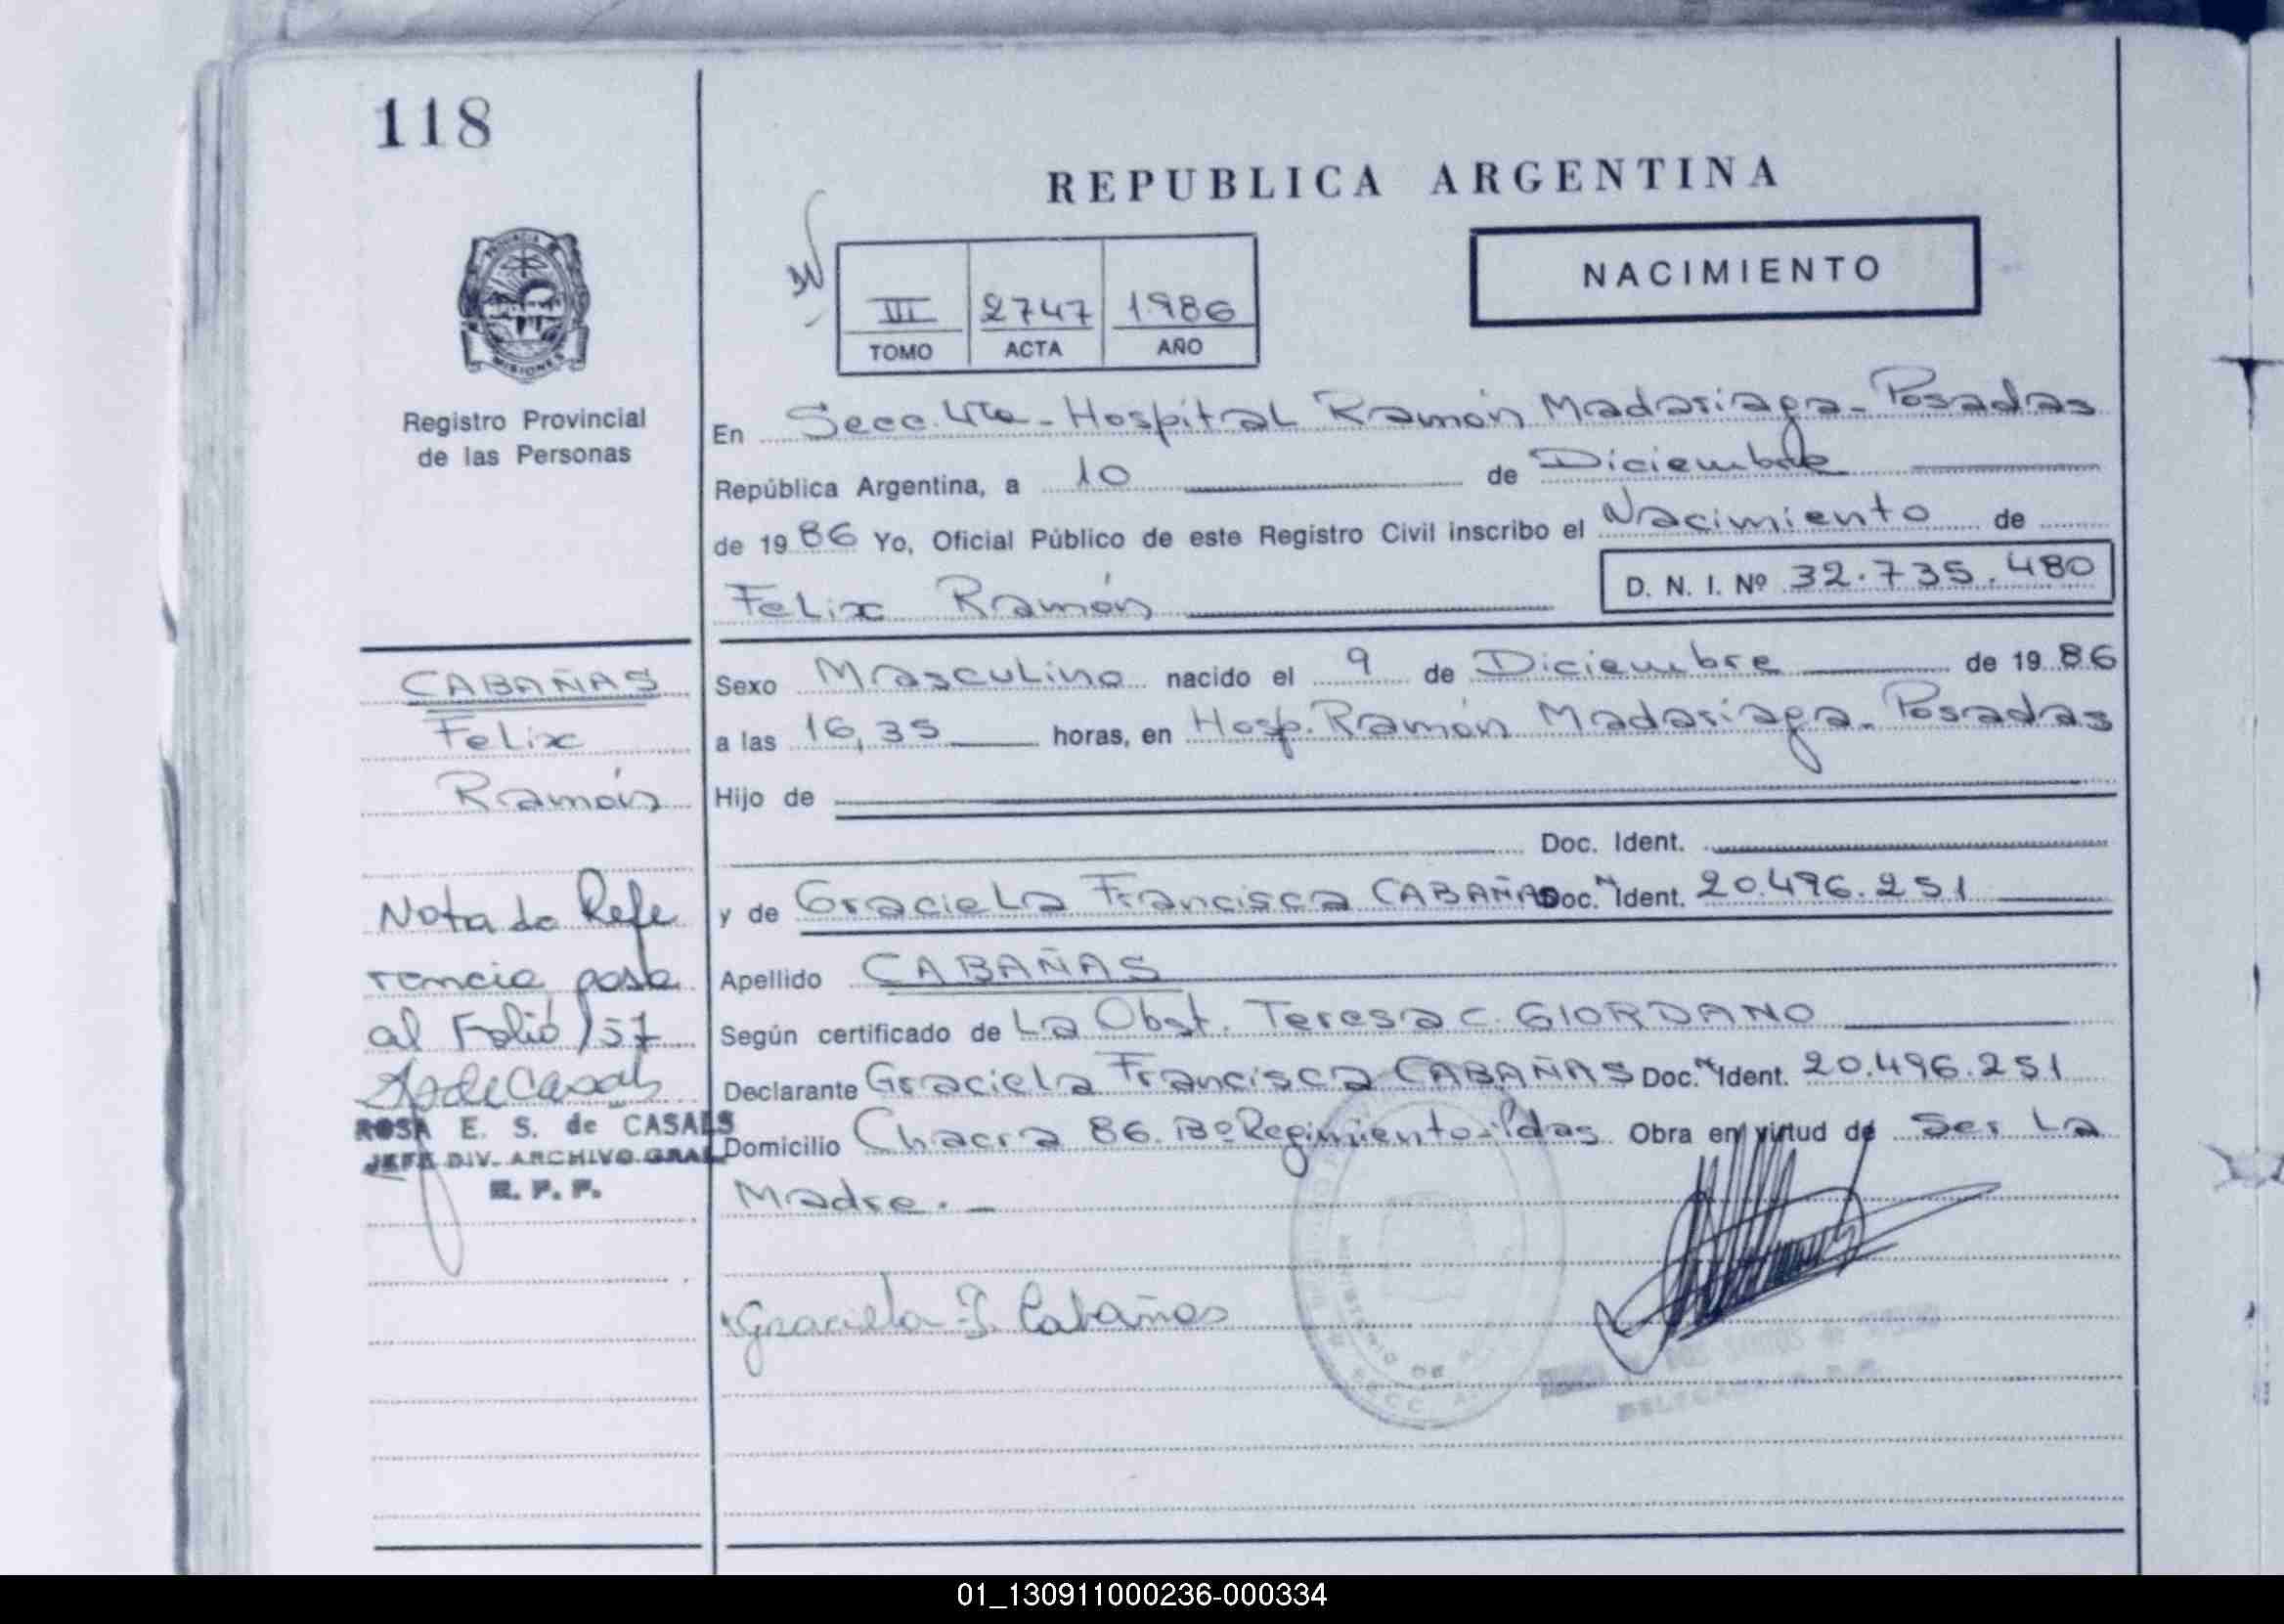 118
REPUBLICA ARGENTINA
NACIMIENTO
III 2747 1986
TOMO ACTA AÑO
PROVINCIA DE
MISIONES
Registro Provincial
de las Personas
En Secc. 4ta - Hospital Ramón Madariaga - Posadas
República Argentina, a 10 de Diciembre
de 1986 Yo, Oficial Público de este Registro Civil inscribo el Nacimiento de
Felix Ramón D. N. I. Nº 32.735.480
CABAÑAS
Felix
Ramón
Sexo Masculino nacido el 9 de Diciembre de 1986
a las 16,35 horas, en Hosp. Ramón Madariaga - Posadas
Hijo de
Doc. Ident.
y de Graciela Francisca CABAÑAS Doc. Ident. 20.496.251
Apellido CABAÑAS
Según certificado de La Obst. Teresa C. GIORDANO
Declarante Graciela Francisca CABAÑAS Doc. Ident. 20.496.251
Domicilio Chacra 86. Bº Regimiento - Pdas. Obra en virtud de Ser La
Madre. -
Nota de Refe
rencia pasa
al Folio 157
ROSA E. S. de CASALS
JEFE DIV. ARCHIVO GRAL
R. P. P.
Graciela F. Cabañas
01_130911000236-000334